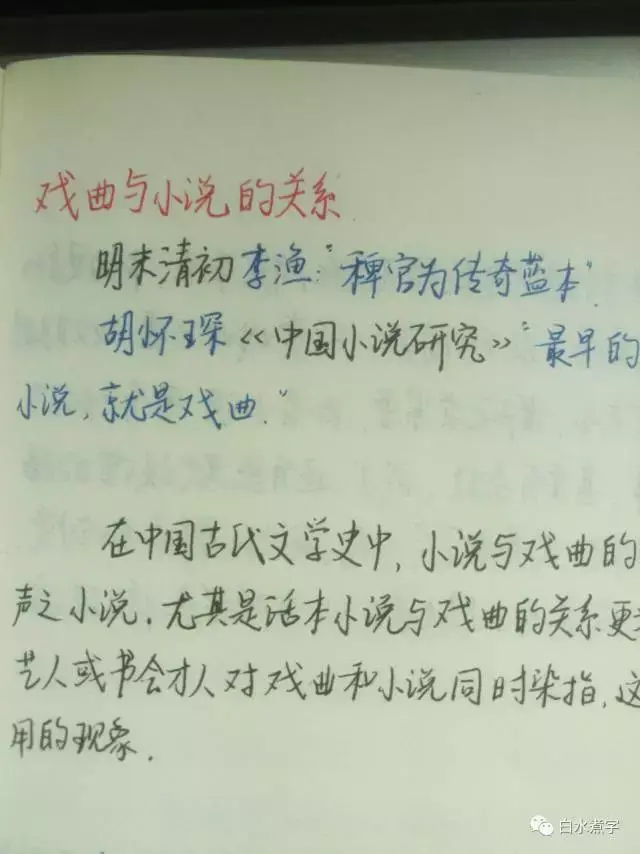 戏曲与小说的关系
明末清初李渔:"稗官为传奇蓝本".
胡怀琛《中国小说研究》"最早的
小说,就是戏曲."
在中国古代文学史中,小说与戏曲的
声之小说,尤其是话本小说与戏曲的关系更
艺人或书会才人对戏曲和小说同时染指,这
用的现象.
白水煮字